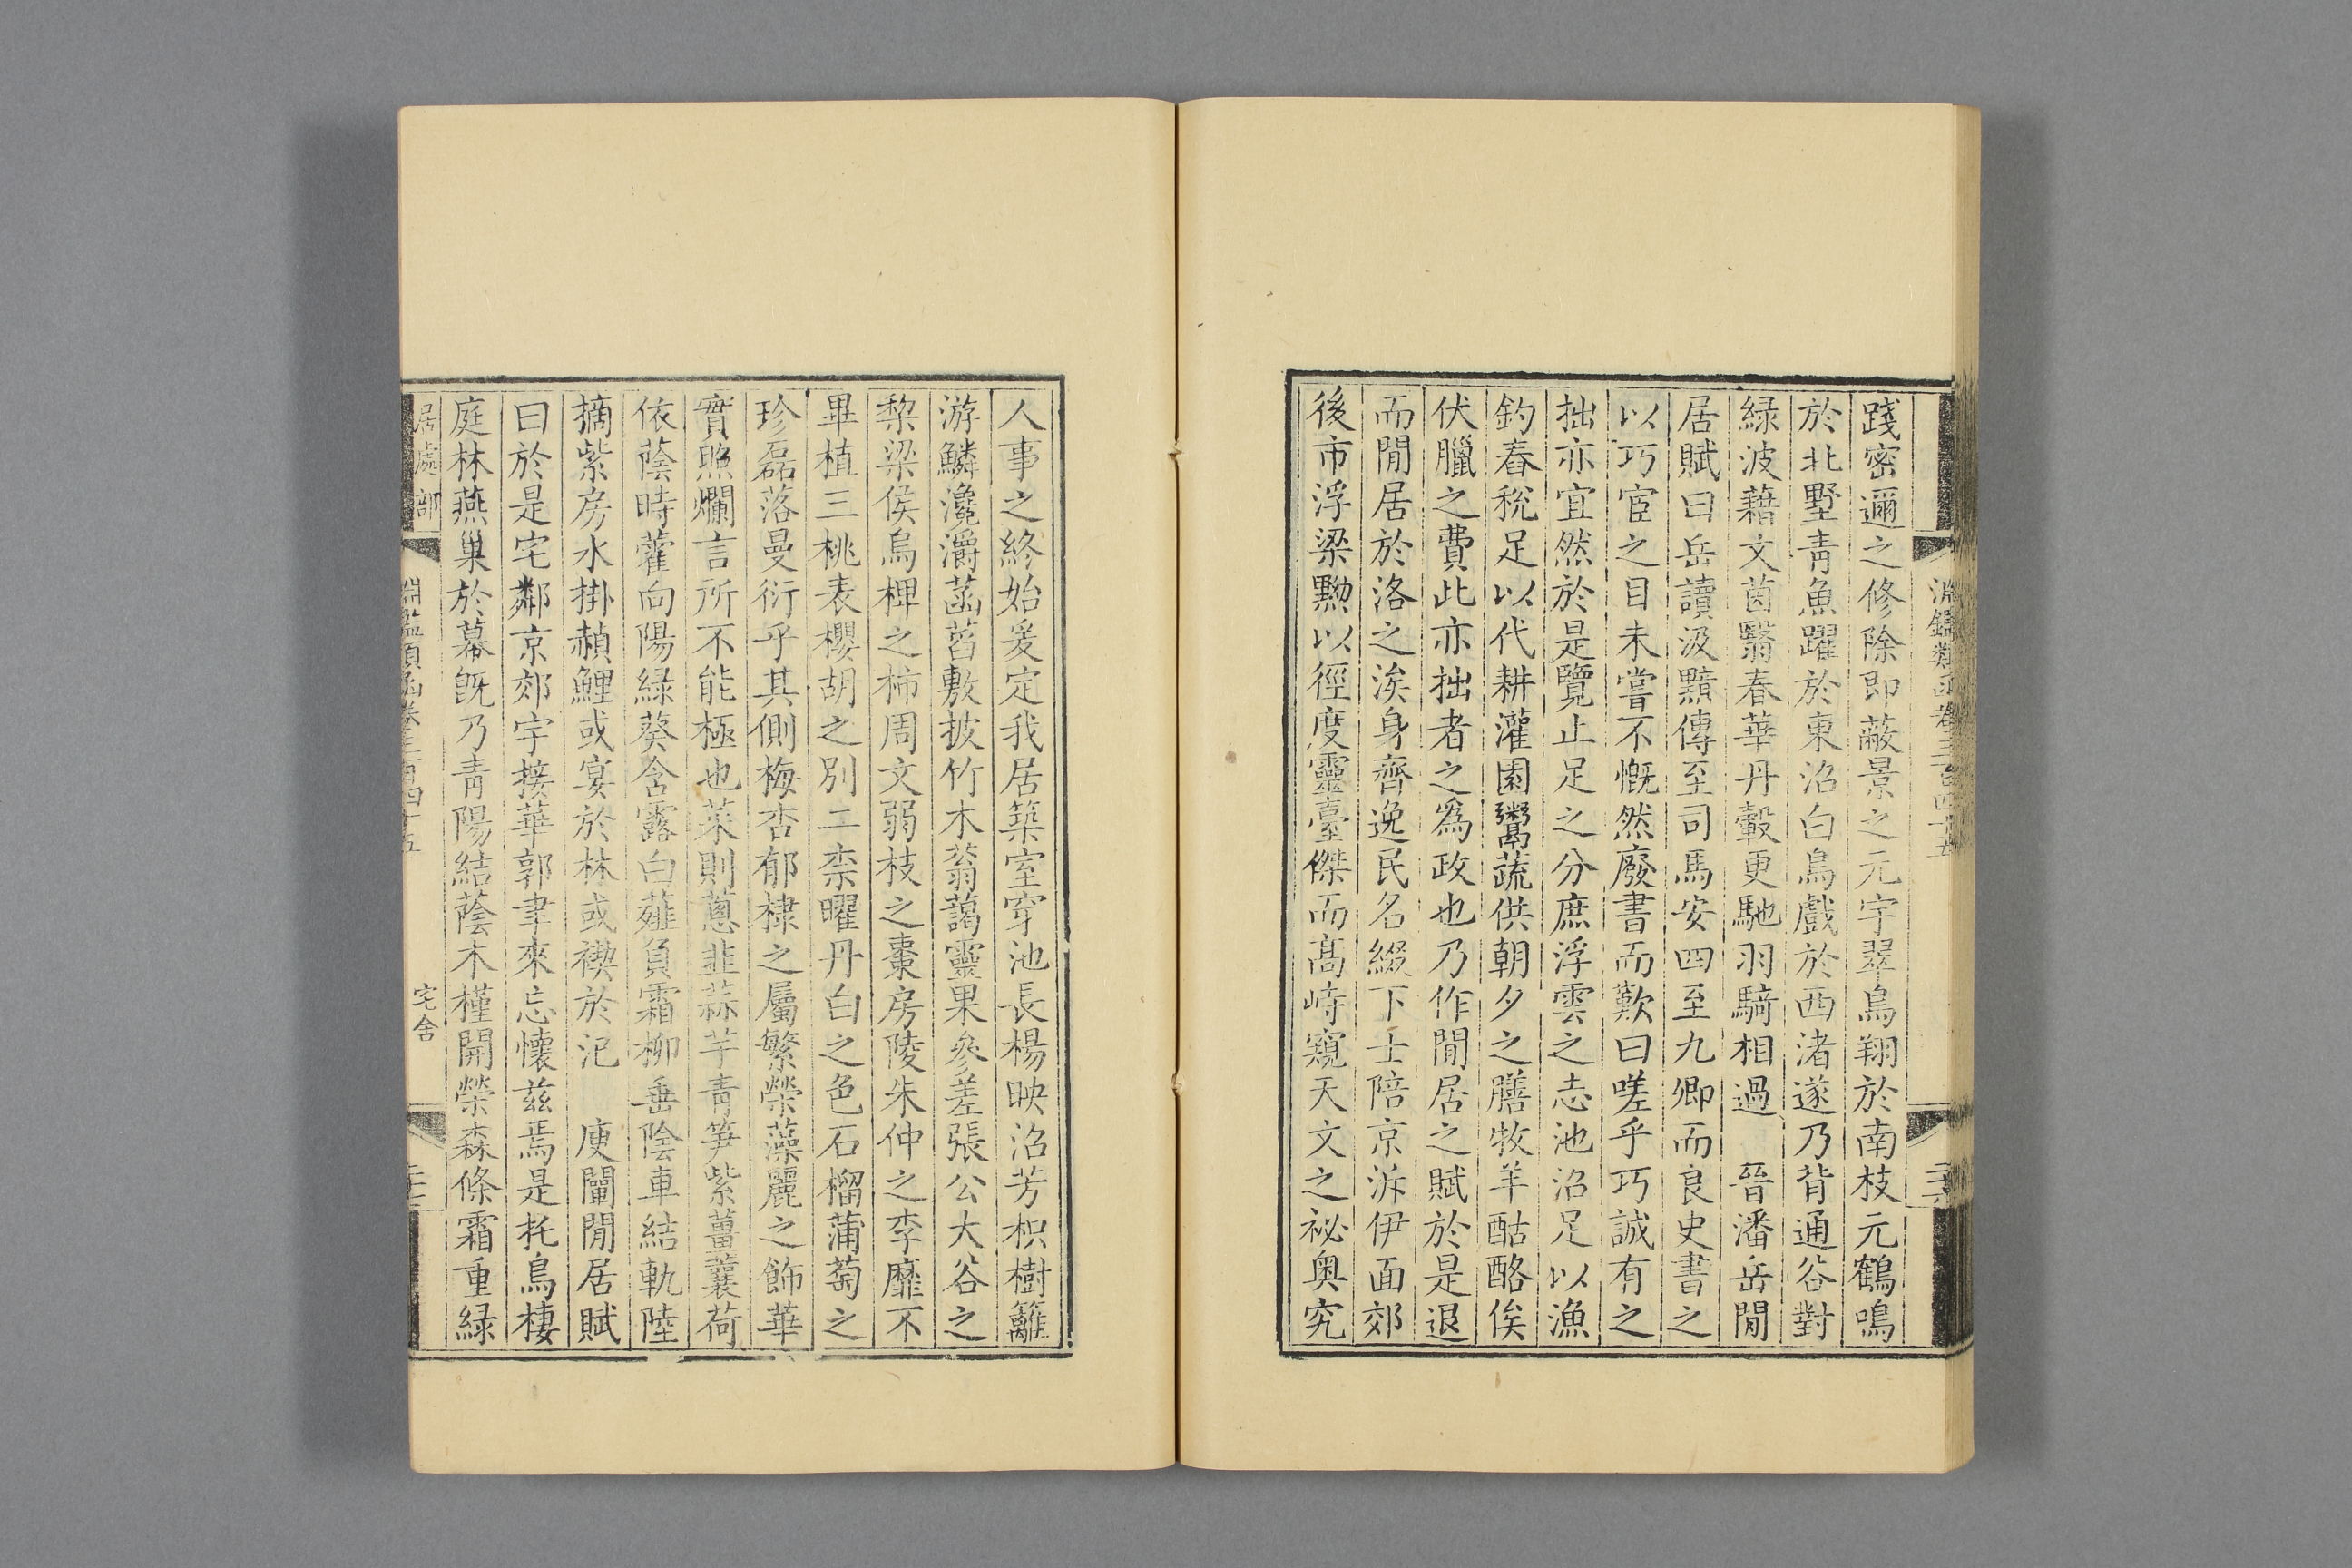 淵鑑類函卷三百四十五
踐密邇之修除即蔽景之元宇翠鳥翔於南枝元鶴鳴
於北墅青魚躍於東沼白鳥戲於西渚遂乃背通谷對
緑波藉文茵翳春華丹轂更馳羽騎相過　晉潘岳閒
居賦曰岳讀汲黯傳至司馬安四至九卿而良史書之
以巧宦之目未嘗不慨然廢書而歎曰嗟乎巧誠有之
拙亦宜然於是覽止足之分庶浮雲之志池沼足以漁
釣舂稅足以代耕灌園鬻蔬供朝夕之膳牧羊酤酪俟
伏臘之費此亦拙者之爲政也乃作閒居之賦於是退
而閒居於洛之涘身齊逸民名綴下士陪京泝伊面郊
後市浮梁黝以徑度靈臺傑而髙峙窺天文之祕奥究
人事之終始爰定我居築室穿池長楊映沼芳枳樹籬
游鱗瀺灂菡萏敷披竹木蓊藹靈果參差張公大谷之
棃梁侯烏椑之柿周文弱枝之棗房陵朱仲之李靡不
畢植三桃表櫻胡之別二柰曜丹白之色石榴蒲萄之
珍磊落曼衍乎其側梅杏郁棣之屬繁榮藻麗之飾華
實照爛言所不能極也菜則蔥韭蒜芋青笋紫薑蘘荷
依蔭時藿向陽緑葵含露白薤負霜柳垂陰車結軌陸
摘紫房水掛赬鯉或宴於林或禊於汜　庾闡閒居賦
曰於是宅鄰京郊宇接華郭聿來忘懷兹焉是托鳥棲
庭林燕巢於幕旣乃青陽結蔭木槿開榮森條霜重緑
居處部　淵鑑類函卷三百四十五　宅舍